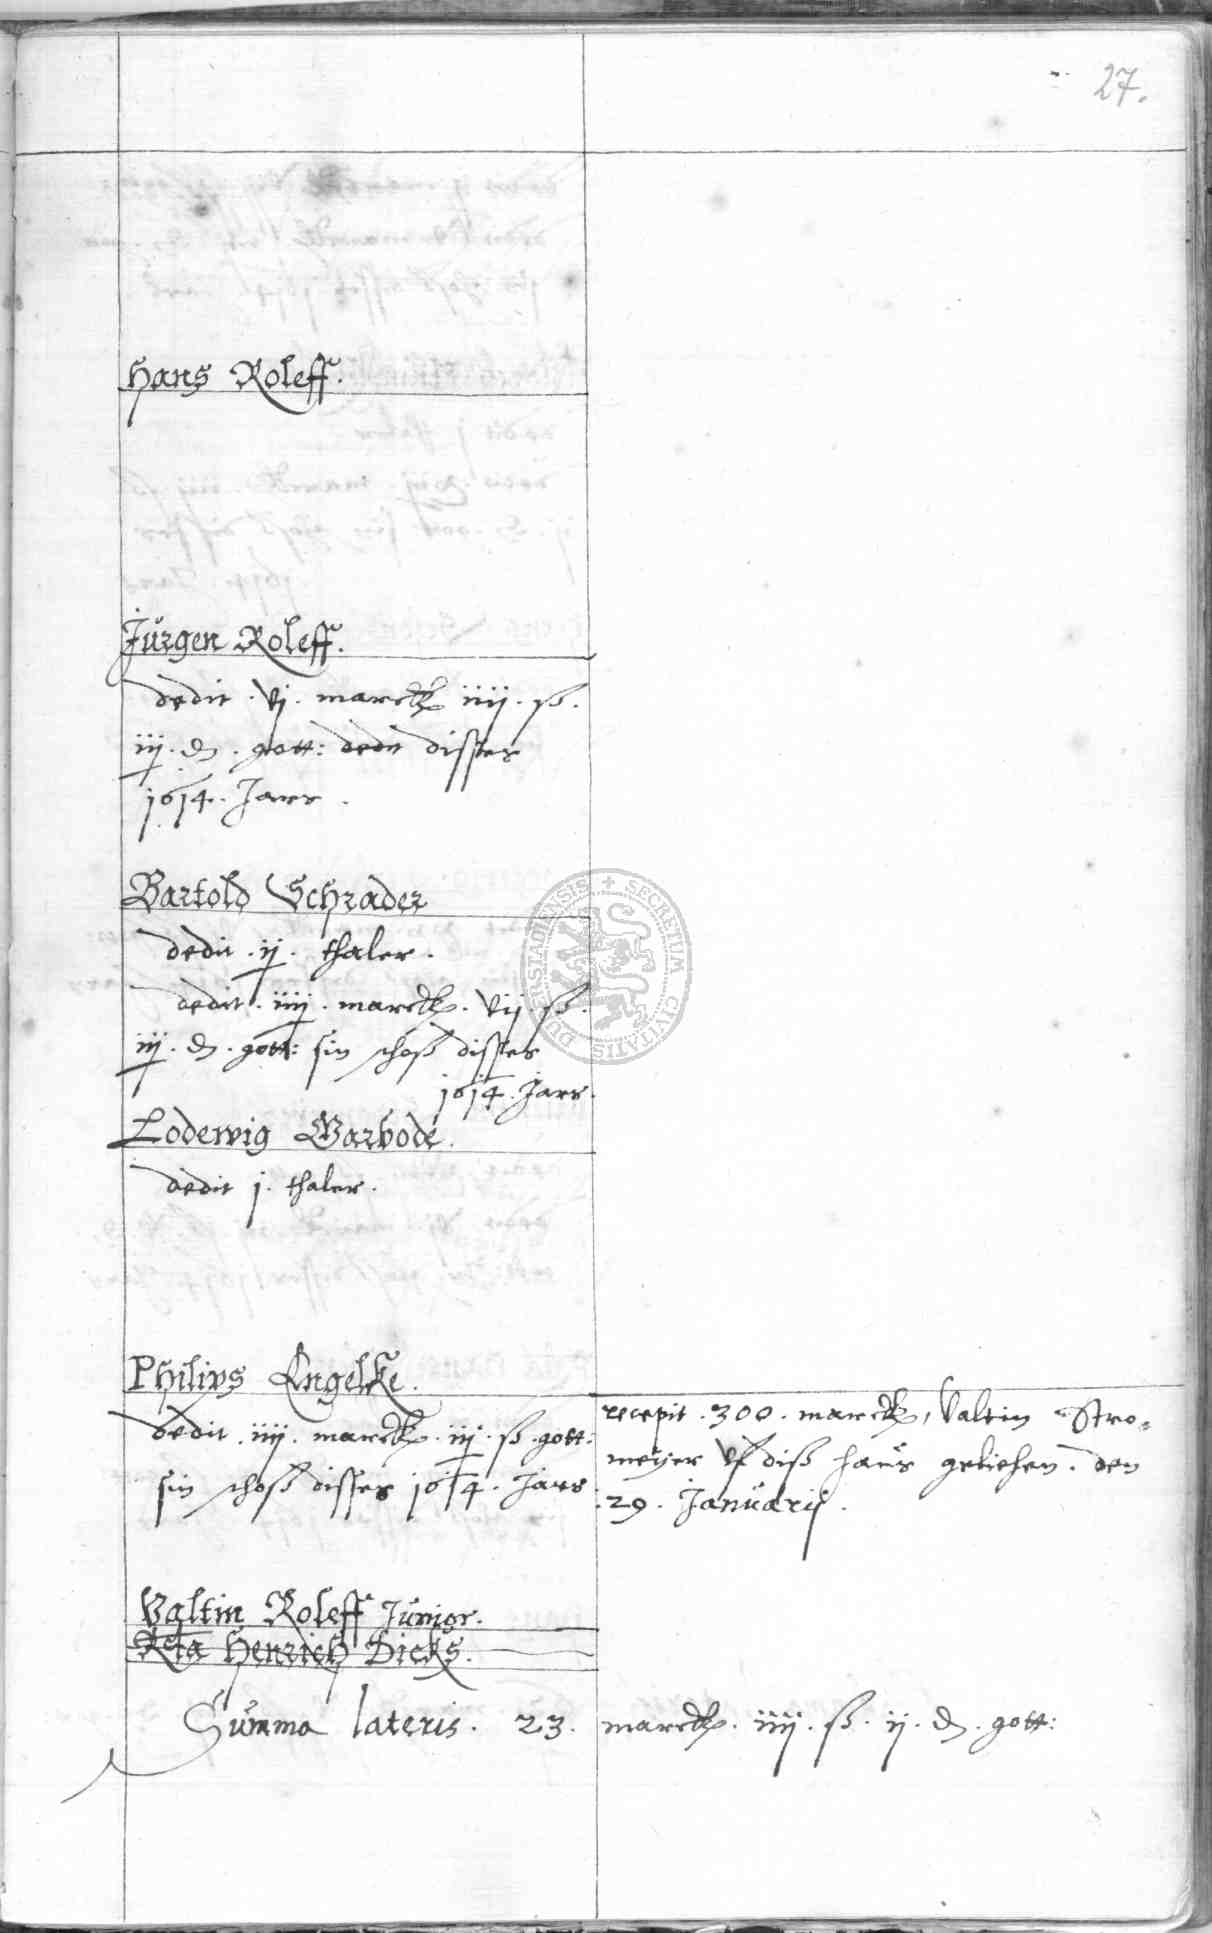 27.
Hans Roleff.
Jürgen Roleff.
dedit . vj . marck iiij . ß .
iij . d . gott: dedit disses
1614 . Jars .
Bartold Schrader
dedit . ij . thaler .
dedit . iiij . marck . vij . ß .
iij . d . gott: sin schoß disses
1614 . Jars .
Lodewig Warbode .
dedit j . thaler .
Philips Engelke .
dedit . iiij . marck . iij . ß . gott:
sin schoß disses 1614 . Jars
recepit . 300 . marck, Valtin Stro=
meyer vf diß haus geliehen . den
29 . Januarij .
Valtin Roleff Junior .
Relicta Henrich Dicks .
Summa lateris . 23 . marck . iiij . ß . ij . d . gott:
SECRETUM CIVITATIS DUDERSTADIENSIS